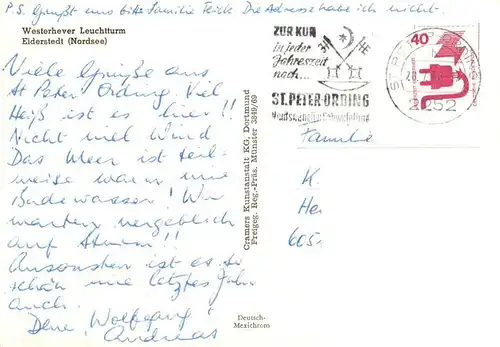 P.S. Grüßt uns bitte Familie Frick. Die Adresse habe ich nicht.
Westerhever Leuchtturm
Eiderstedt (Nordsee)
Viele Grüße aus
St Peter Ording. Viel
Heiß ist es hier!!
Nicht viel Wind
Das Meer ist teil-
weise warm wie
Badewasser! Wir
warten vergeblich
auf Sturm!!
Ansonsten ist es so
schön wie letztes Jahr
auch.
Wolfgang
Andreas
Cramers Kunstanstalt KG, Dortmund
Freigeg. Reg.-Präs. Münster 3846/69
Deutsch-
Mexichrom
ZUR KUR
in jeder
Jahreszeit
nach...
ST.PETER-ORDING
40
252
Familie
K.
Hei
605